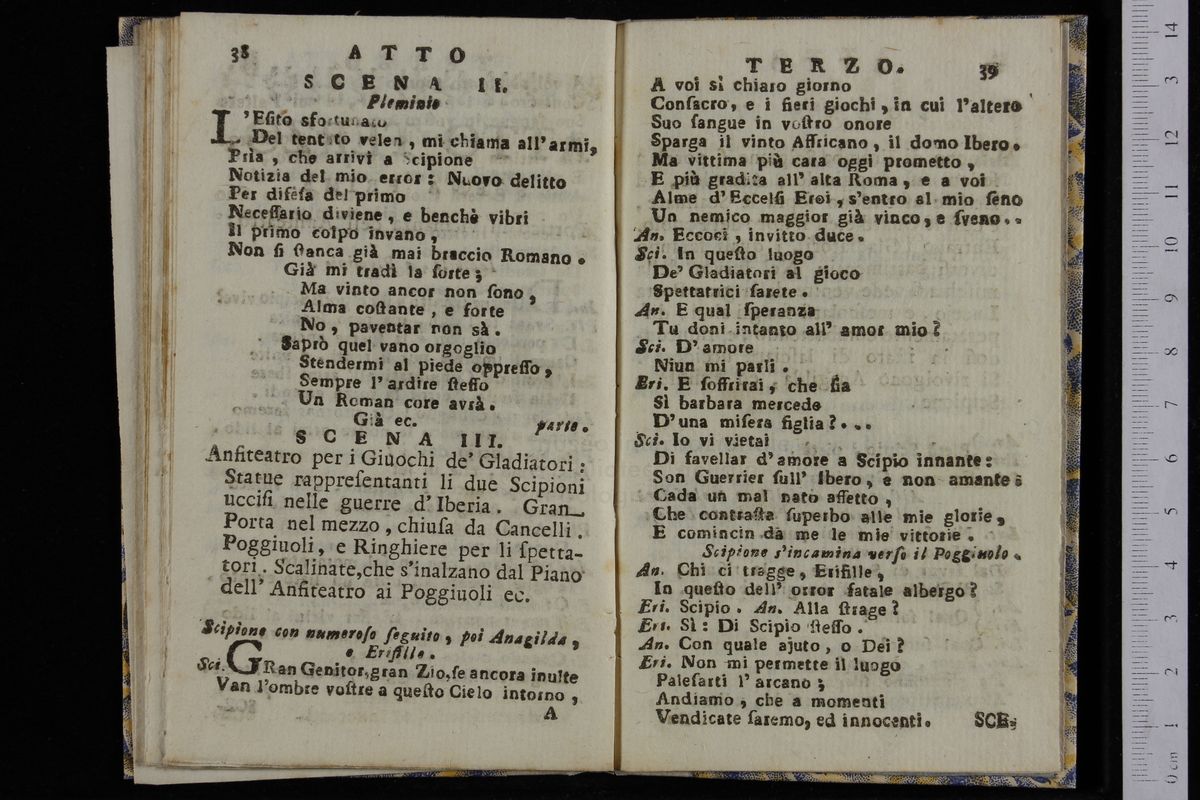 38 ATTO
SCENA II.
Pleminio
L'Esito sfortunato
Del tentato velen, mi chiama all'armi,
Pria, che arrivi a Scipione
Notizia del mio error: Nuovo delitto
Per difesa del primo
Necessario diviene, e benchè vibri
Il primo colpo invano,
Non si stanca già mai braccio Romano.
Già mi tradì la sorte;
Ma vinto ancor non sono,
Alma costante, e forte
No, paventar non sà.
Saprò quel vano orgoglio
Stendermi al piede oppresso,
Sempre l'ardire stesso
Un Roman core avrà.
Già ec. parte.
SCENA III.
Anfiteatro per i Giuochi de' Gladiatori:
Statue rappresentanti li due Scipioni
uccisi nelle guerre d'Iberia. Gran
Porta nel mezzo, chiusa da Cancelli.
Poggiuoli, e Ringhiere per li spetta-
tori. Scalinate, che s'inalzano dal Piano
dell' Anfiteatro ai Poggiuoli ec.
Scipione con numeroso seguito, poi Anagilda,
e Erifille.
Sci. GRan Genitor, gran Zio, se ancora inulte
Van l'ombre vostre a questo Cielo intorno,
A
TERZO. 39
A voi sì chiaro giorno
Consacro, e i fieri giochi, in cui l'altero
Suo sangue in vostro onore
Sparga il vinto Affricano, il domo Ibero.
Ma vittima più cara oggi prometto,
E più gradita all' alta Roma, e a voi
Alme d'Eccelsi Eroi, s'entro al mio seno
Un nemico maggior già vinco, e sveno..
An. Eccoci, invitto duce.
Sci. In questo luogo
De' Gladiatori al gioco
Spettatrici sarete.
An. E qual speranza
Tu doni intanto all' amor mio?
Sci. D' amore
Niun mi parli.
Eri. E soffrirai, che sia
Sì barbara mercede
D'una misera figlia?...
Sci. Io vi vietai
Di favellar d'amore a Scipio innante:
Son Guerrier sull' Ibero, e non amante:
Cada un mal nato affetto,
Che contrasta superbo alle mie glorie,
E comincin da me le mie vittorie.
Scipione s'incamina verso il Poggiuolo.
An. Chi ci tragge, Erifille,
In questo dell' orror fatale albergo?
Eri. Scipio. An. Alla strage?
Eri. Sì: Di Scipio stesso.
An. Con quale ajuto, o Dei?
Eri. Non mi permette il luogo
Palesarti l' arcano;
Andiamo, che a momenti
Vendicate saremo, ed innocenti. SCE-